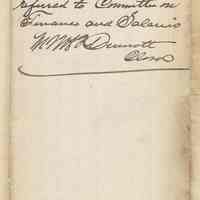 referred to Committee on
Finance and Salaries
W. McDermott
Clerk